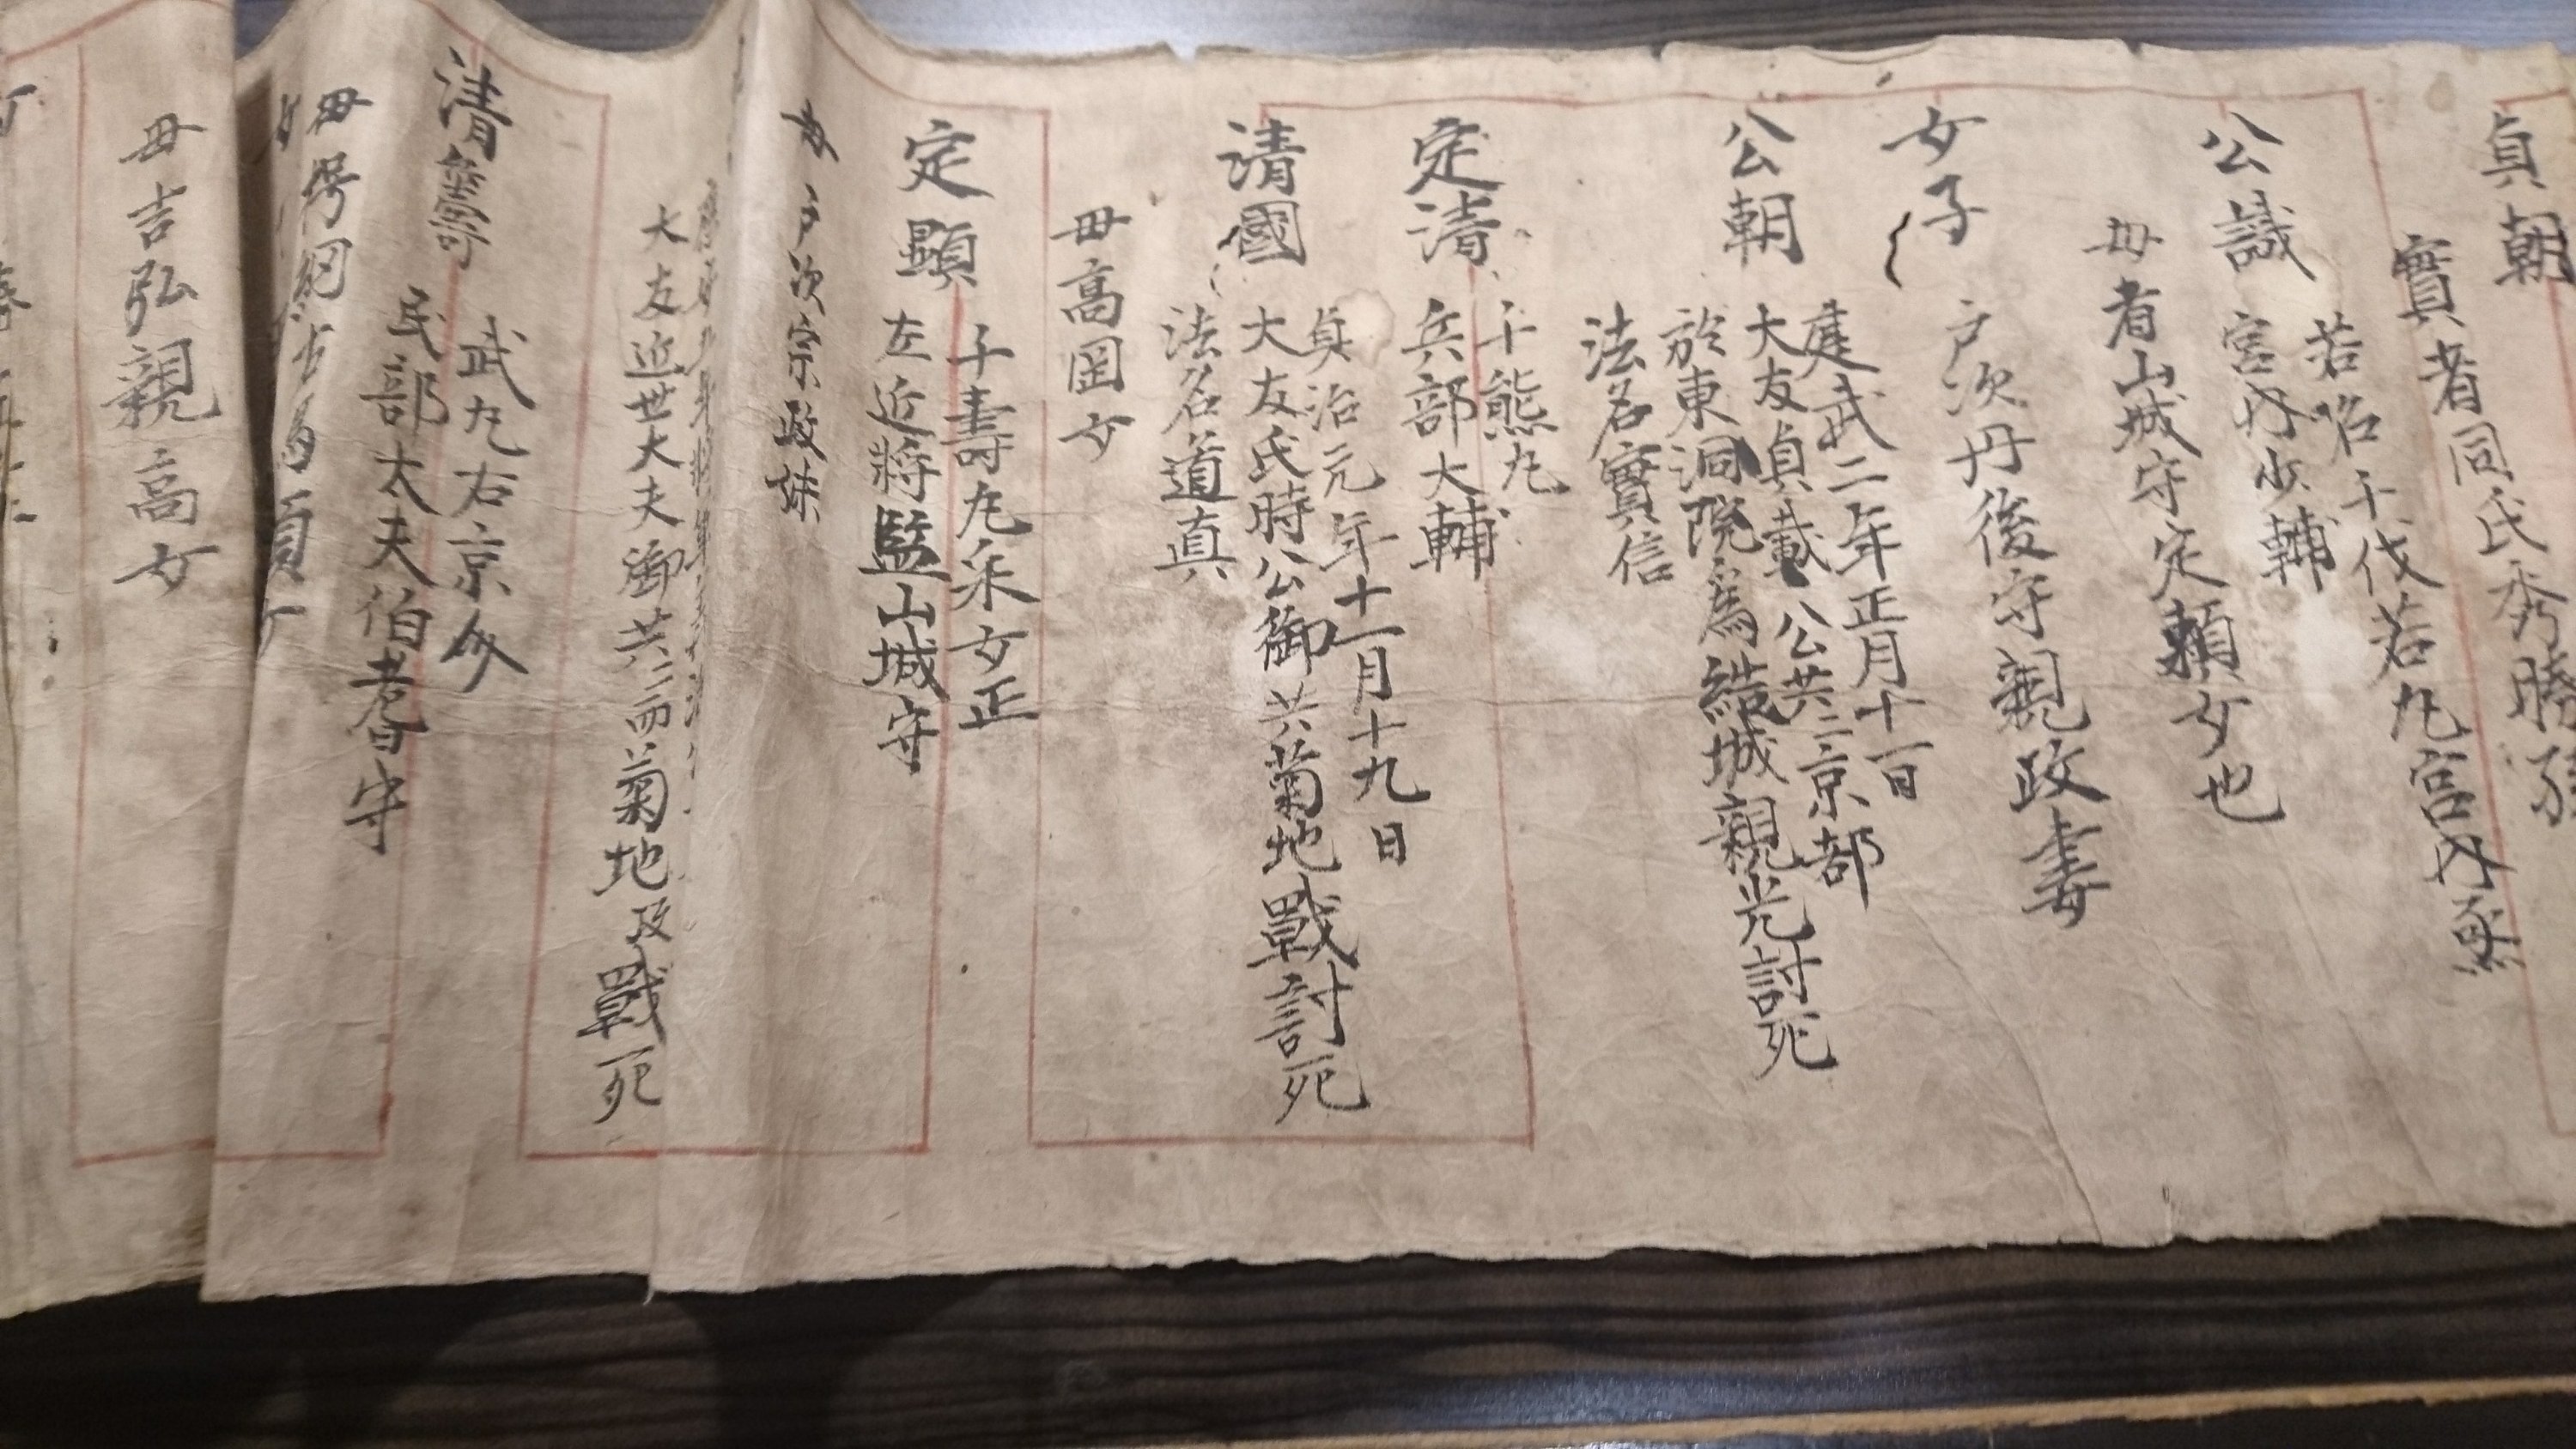 貞朝
實者同氏秀勝
若名千代若丸宮内丞
公識
宮内少輔
母者山城守定頼女也
女子
戸次丹後守親政妻
公朝
建武二年正月十一日
大友貞載公共ニ京部
於東洞院為結城親光討死
法名實信
定清
千熊丸
兵部大輔
清國
貞治元年十一月十九日
大友氏時公御共菊地戰討死
法名道真
母高岡女
定顯
千壽丸采女正
左近將監山城守
戸次宗政妹
大友近世大夫御共ニ而菊地及戰死
清壽
武丸右京
民部太夫伯耆守
母吉弘親高女